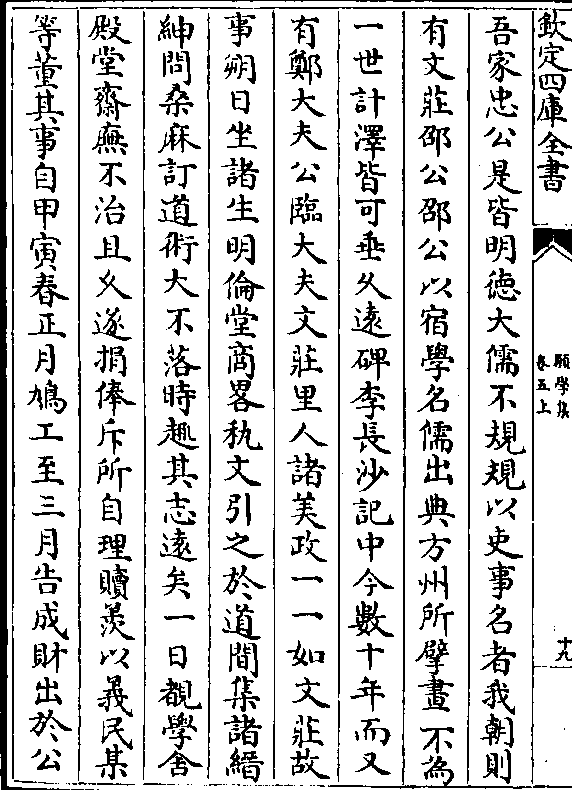 欽定四庫全書
願學集
卷五上
十九
吾家忠公是皆明德大儒不規規以吏事名者我朝則
有文莊邵公邵公以宿學名儒出典方州所擘畫不為
一世計澤皆可垂久遠碑李長沙記中今數十年而又
有鄭大夫公臨大夫文莊里人諸美政一一如文莊故
事朔日坐諸生明倫堂商畧秇文引之於道間集諸縉
紳問桑麻訂道術大不落時趣其志遠矣一日覩學舍
殿堂齋廡不治且久遂捐俸斥所自理贖羨以義民某
等董其事自甲寅春正月鳩工至三月告成財出於公